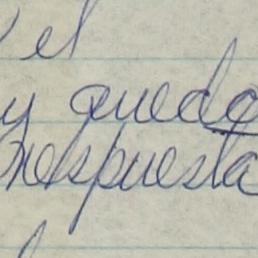 y el
y quedo
respuesta